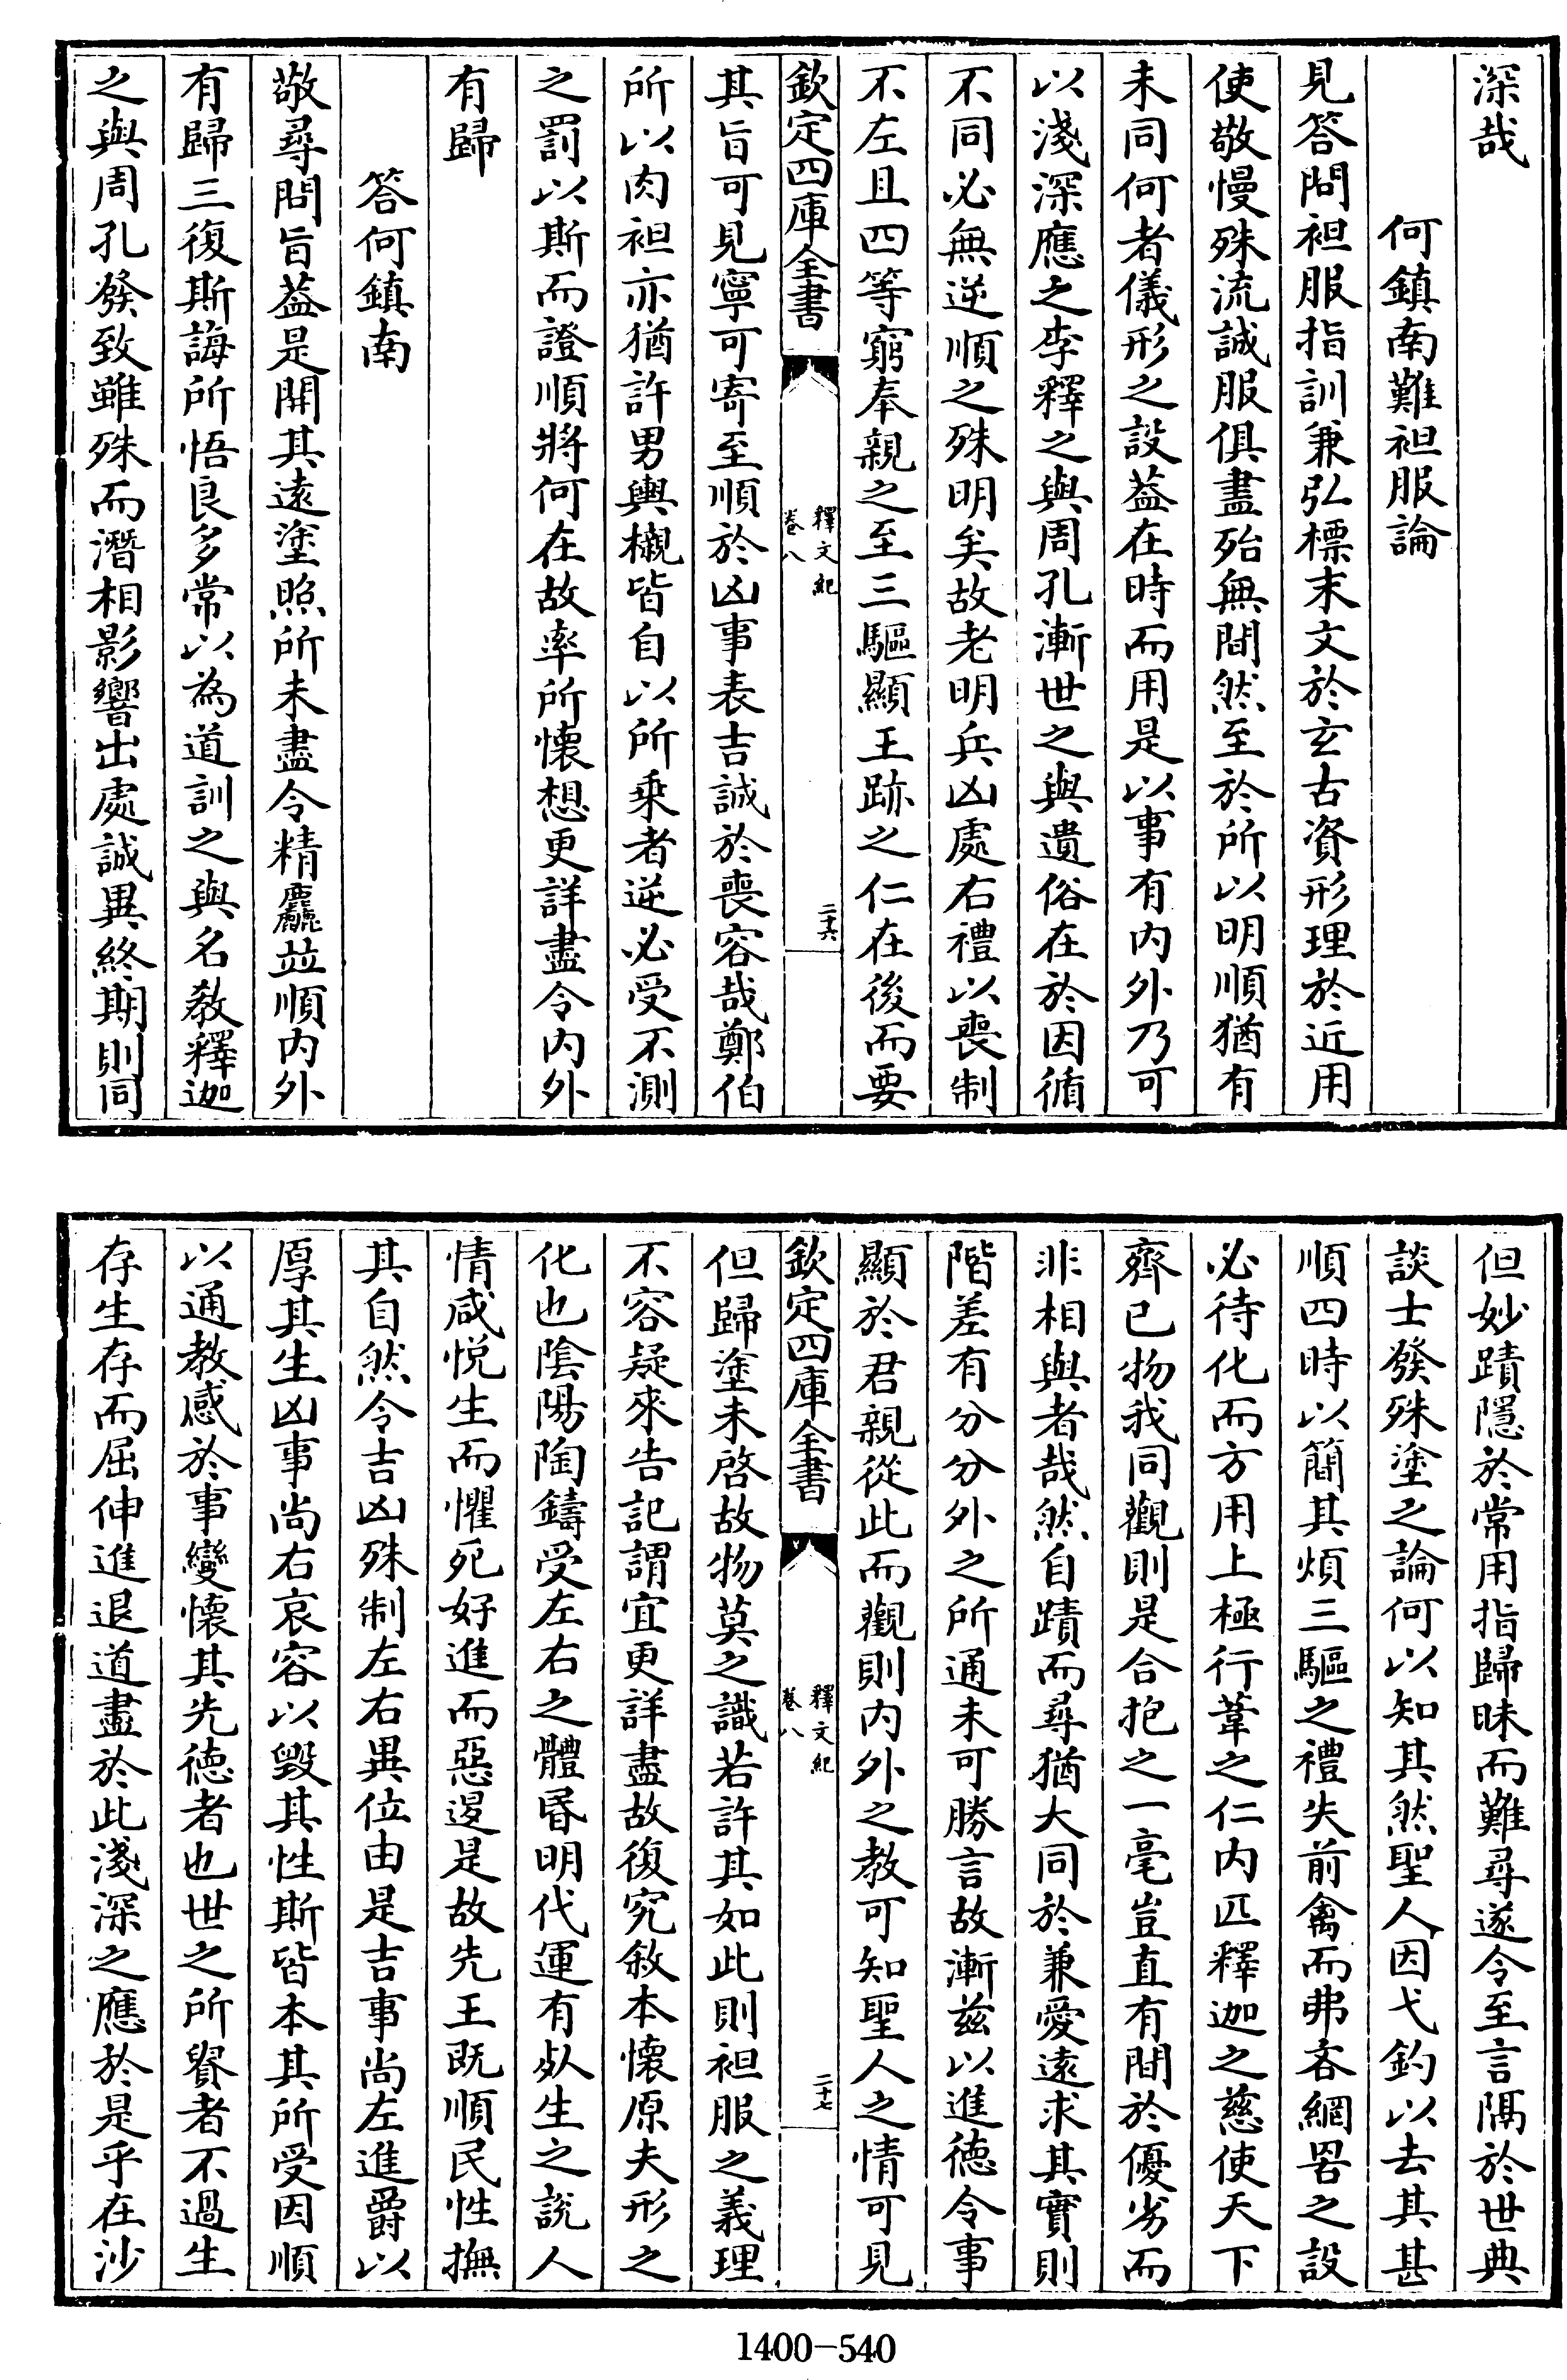 深哉
何鎮南難袒服論
見答問袒服指訓兼弘標末文於玄古資形理於近用
使敬慢殊流誠服俱盡殆無間然至於所以明順猶有
未同何者儀形之設葢在時而用是以事有内外乃可
以淺深應之李釋之與周孔漸世之與遺俗在於因循
不同必無逆順之殊明矣故老明兵凶處右禮以喪制
不左且四等窮奉親之至三驅顯王跡之仁在後而要
欽定四庫全書
釋文紀
卷八
二十六
其旨可見寧可寄至順於凶事表吉誠於喪容哉鄭伯
所以肉袒亦猶許男輿櫬皆自以所乗者逆必受不測
之罰以斯而證順將何在故率所懐想更詳盡令内外
有歸
答何鎮南
敬尋問旨葢是開其遠塗照所未盡令精麤並順内外
有歸三復斯誨所悟良多常以為道訓之與名教釋迦
之與周孔發致雖殊而潛相影響出處誠異終期則同
但妙蹟隱於常用指歸昧而難尋遂令至言隔於世典
談士發殊塗之論何以知其然聖人因弋釣以去其甚
順四時以簡其煩三驅之禮失前禽而弗吝網罟之設
必待化而方用上極行葦之仁内匹釋迦之慈使天下
齊已物我同觀則是合抱之一毫豈直有間於優劣而
非相與者哉然自蹟而尋猶大同於兼愛遠求其實則
階差有分分外之所通未可勝言故漸兹以進德令事
顯於君親從此而觀則内外之教可知聖人之情可見
欽定四庫全書
釋文紀
卷八
二十七
但歸塗未啓故物莫之識若許其如此則袒服之義理
不容疑來告記謂宜更詳盡故復究敘本懐原夫形之
化也陰陽陶鑄受左右之體昬明代運有死生之說人
情咸悦生而懼死好進而惡退是故先王既順民性撫
其自然令吉凶殊制左右異位由是吉事尚左進爵以
厚其生凶事尚右哀容以毀其性斯皆本其所受因順
以通教感於事變懐其先徳者也世之所貴者不過生
存生存而屈伸進退道盡於此淺深之應於是乎在沙
1400-540